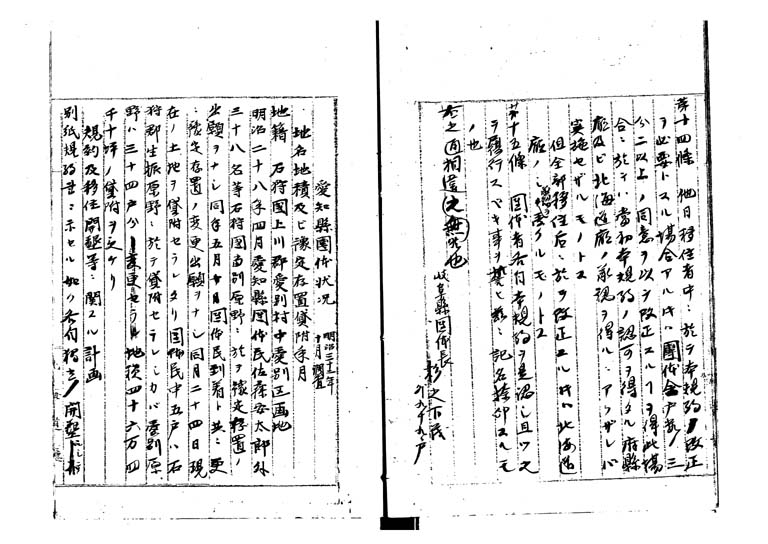 第十四條 他日移住者中ニ於テ本規約ノ改正
ヲ必要トスル場合アルトキハ團体全戸数ノ三
分二以上ノ同意ヲ以テ改正スルヲ得此場
合ニ於テハ當初本規約ノ認可ヲ得タル府縣
廰及ビ北海道廰ノ承認ヲ得ルニアラザレバ
実施セザルモノトス
但全部移住后ニ於テ改正スルトキハ北海道
廰ノミノ承認ヲ受クルモノトス
第十五條 団体者各自本規約ヲ是認シ且ツ之
ヲ履行スベキ事ヲ誓ヒ茲ニ記名捺印スルモ
ノ也
右之通相違之無候也
岐阜縣団体長
外九十九戸
愛知縣團体状况
明治三十三年
十月調査
地名地積及ビ豫定存置貸附年月
地籍 石狩國上川郡愛別村中愛別区画地
明治二十八年四月愛知縣団体民佐藤安太郎外
三十八名等石狩国当別原野ニ於ケ豫定存置ノ
出願ヲナシ同年五月 日団体民到着ト共ニ更
ニ豫定存置ノ変更出願ヲナシ同月二十四日現
在ノ土地ヲ貸附セラレタリ団体民中五戸ハ石
狩郡生振原野ニ於テ貸附セラレシカバ愛別原
野ハ三十四戸分ニ変更セラル地積四十六万四
千十坪ノ貸附ヲ受ケリ
規約及移住開墾等ニ関スル計画
別紙規約書ニ示セル如ク各自獨立ノ開墾